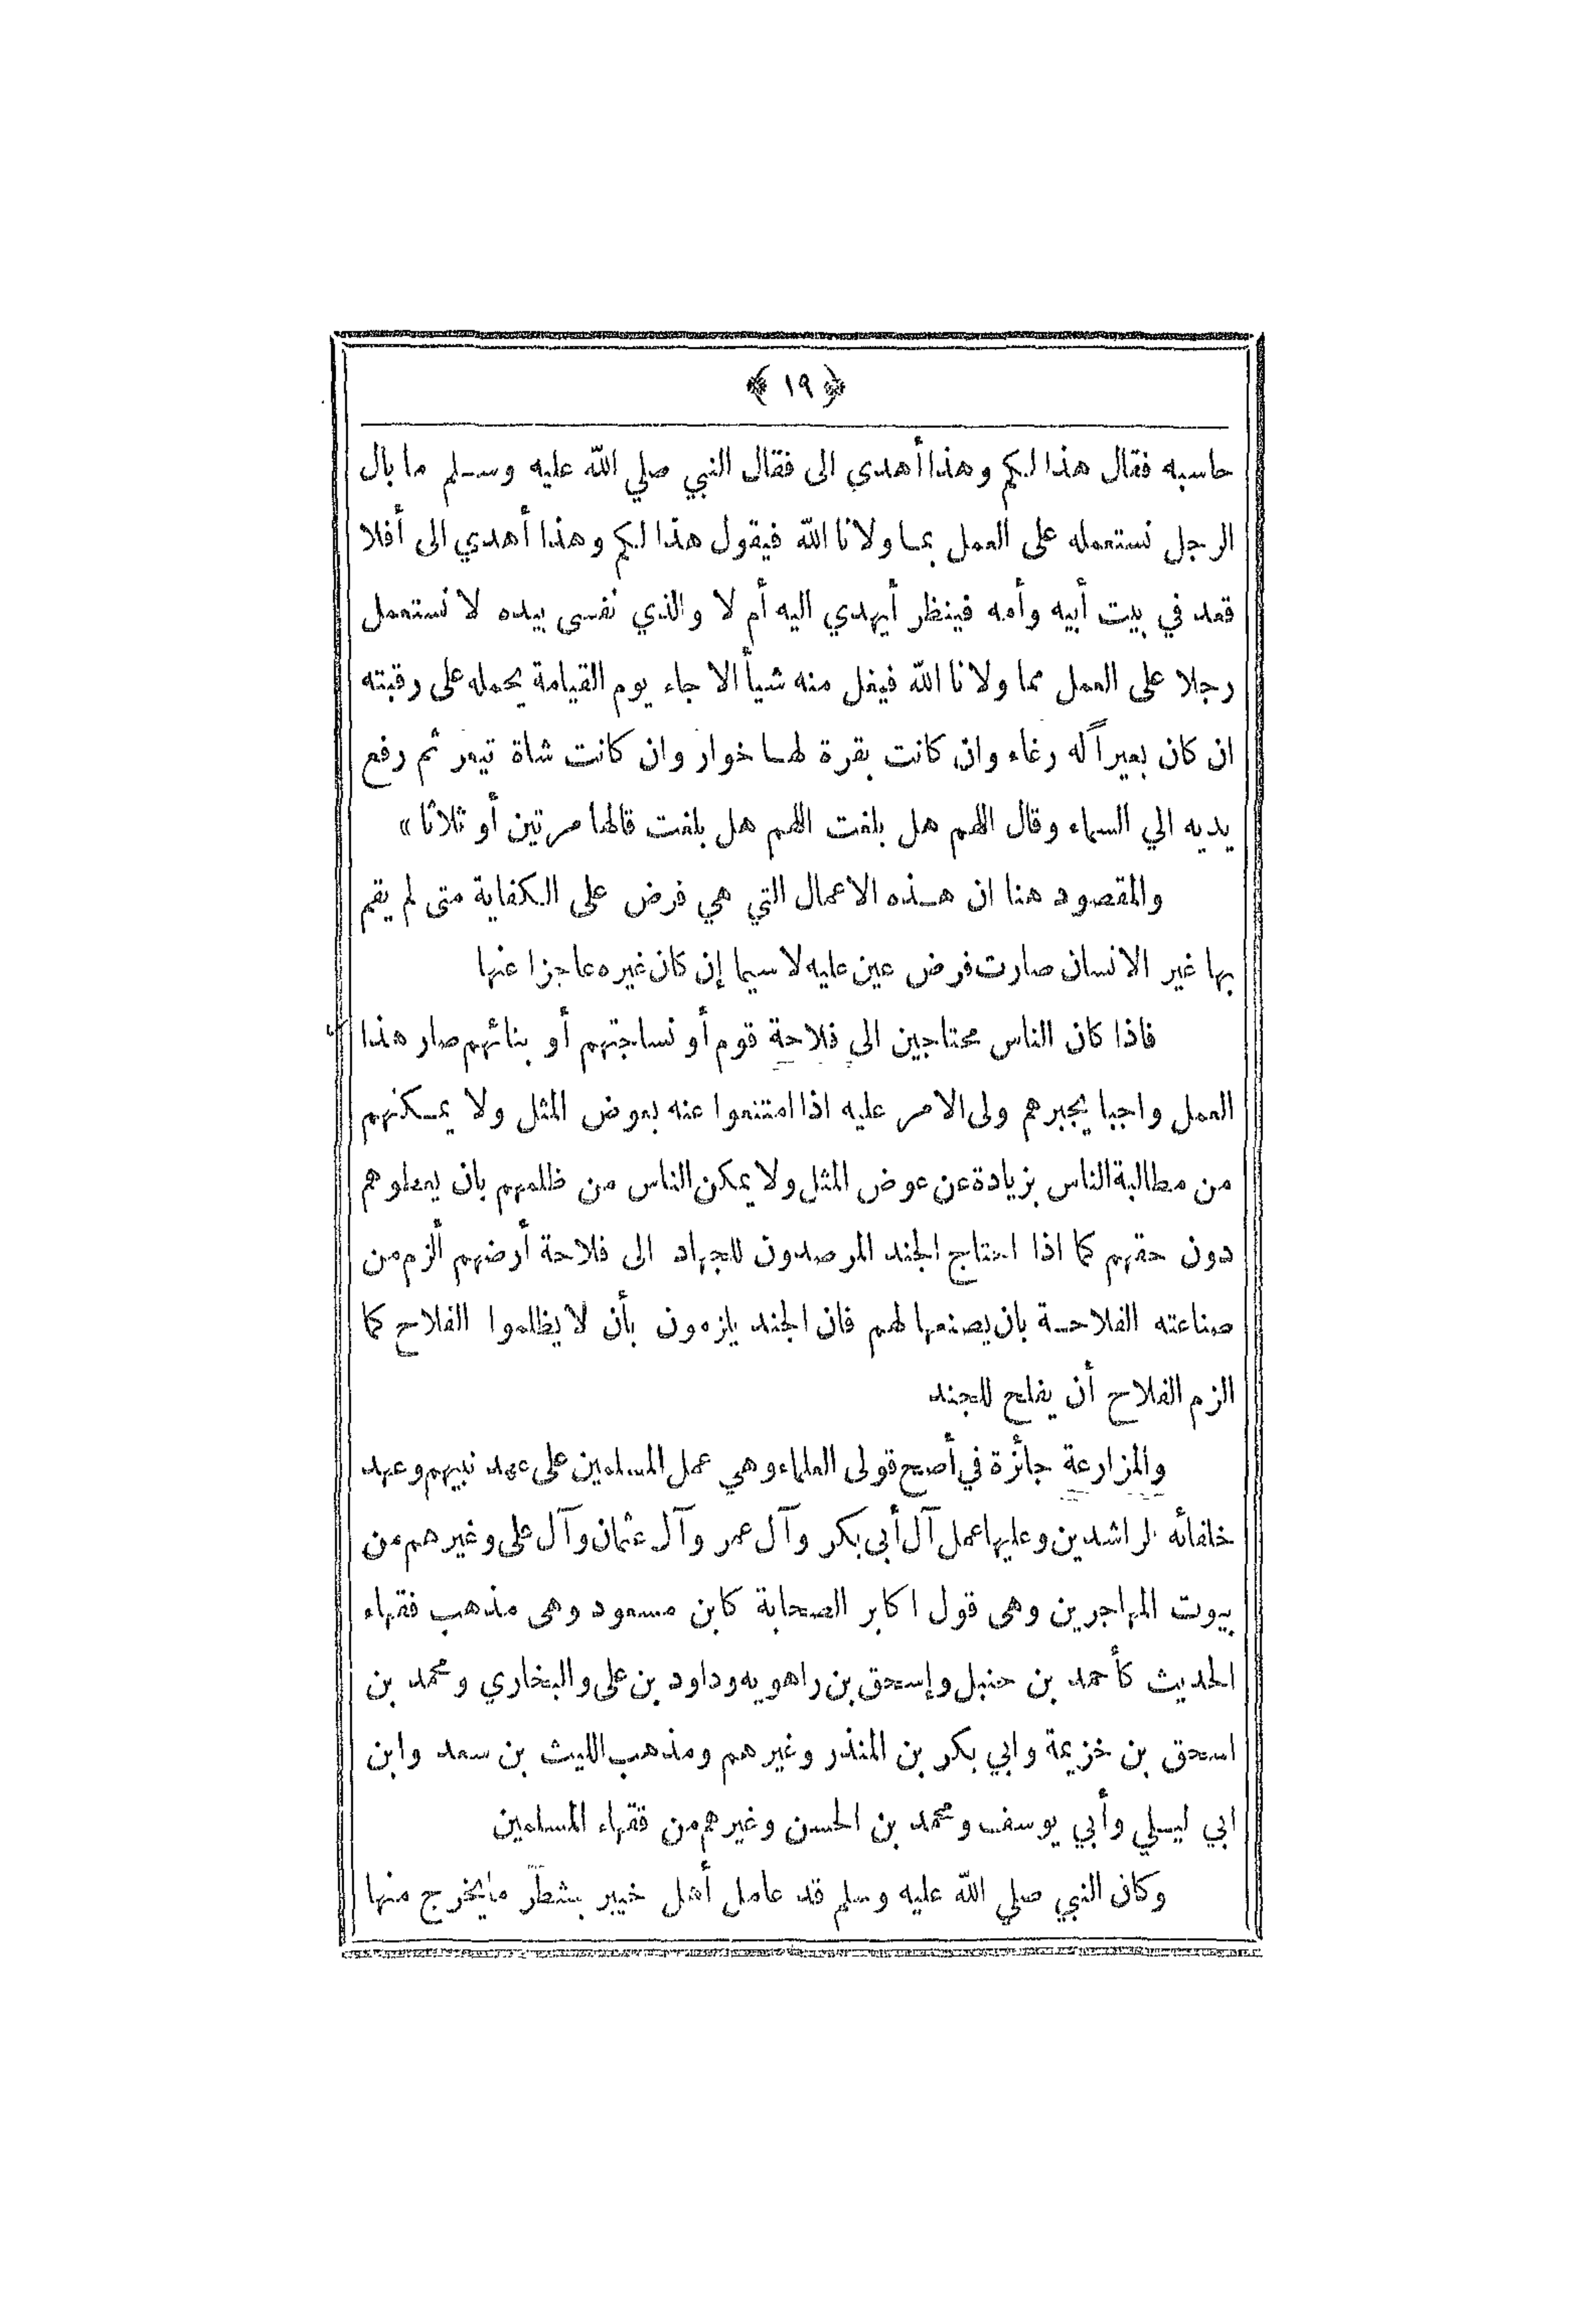 ﴿ ١٩ ﴾
حاسبه فقال هذا لكم وهذا أهدي الى فقال النبي صلي الله عليه وسلم ما بال
الرجل نستعمله على العمل بما ولانا الله فيقول هذا لكم وهذا أهدي الى أفلا
قعد في بيت أبيه وأمه فينظر أيهدي اليه أم لا والذي نفسى بيده لا نستعمل
رجلا على العمل مما ولانا الله فيغل منه شيأ الا جاء يوم القيامة يحمله على رقبته
ان كان بعيراً له رغاء وان كانت بقرة لها خوار وان كانت شاة تيعر ثم رفع
يديه الي السماء وقال اللهم هل بلغت اللهم هل بلغت قالها مرتين أو ثلاثا »
والمقصود هنا ان هذه الاعمال التي هي فرض على الكفاية متى لم يقم
بها غير الانسان صارت فرض عين عليه لا سيما إن كان غيره عاجزا عنها
فاذا كان الناس محتاجين الى فلاحة قوم أو نساجتهم أو بنائهم صار هذا
العمل واجبا يجبرهم ولى الامر عليه اذا امتنعوا عنه بعوض المثل ولا يمكنهم
من مطالبة الناس بزيادة عن عوض المثل ولا يمكن الناس من ظلمهم بان يعطوهم
دون حقهم كما اذا احتاج الجند المرصدون للجهاد الى فلاحة أرضهم ألزم من
صناعته الفلاحة بان يصنعها لهم فان الجند يلزمون بأن لا يظلموا الفلاح كما
الزم الفلاح أن يفلح للجند
والمزارعة جائزة في أصح قولى العلماء وهي عمل المسلمين على عهد نبيهم وعهد
خلفائه الراشدين وعليها عمل آل أبى بكر وآل عمر وآل عثمان وآل على وغيرهم من
بيوت المهاجرين وهى قول اكابر الصحابة كابن مسعود وهى مذهب فقهاء
الحديث كأحمد بن حنبل وإسحق بن راهويه وداود بن على والبخاري ومحمد بن
اسحق بن خزيمة وابي بكر بن المنذر وغيرهم ومذهب الليث بن سعد وابن
ابي ليلي وأبي يوسف ومحمد بن الحسن وغيرهم من فقهاء المسلمين
وكان النبي صلي الله عليه وسلم قد عامل أهل خيبر بشطر ما يخرج منها